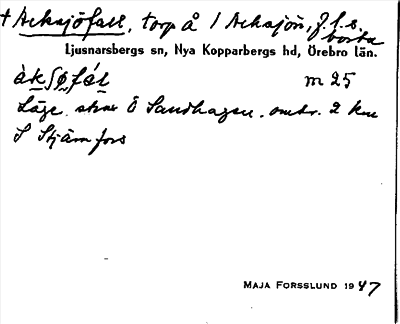 † Acksjöfall, torp å 1 Acksjön, f. l. s.
borta
Ljusnarsbergs sn, Nya Kopparbergs hd, Örebro län.
àkʃøfál m 25
Läge. strax Ö Sandhagen. omkr. 2 km
S Stjärnfors
MAJA FORSSLUND 1947